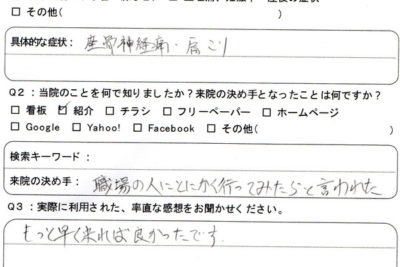 □ その他(　　　　　　　　　　)
具体的な症状： 坐骨神経痛・肩こり
Q2：当院のことを何で知りましたか？来院の決め手となったことは何ですか？
□ 看板 ☑ 紹介 □ チラシ □ フリーペーパー □ ホームページ
□ Google □ Yahoo! □ Facebook □ その他(　　　　　　　)
検索キーワード：
来院の決め手： 職場の人にとにかく行ってみたらと言われた
Q3：実際に利用された、率直な感想をお聞かせください。
もっと早く来れば良かったです.